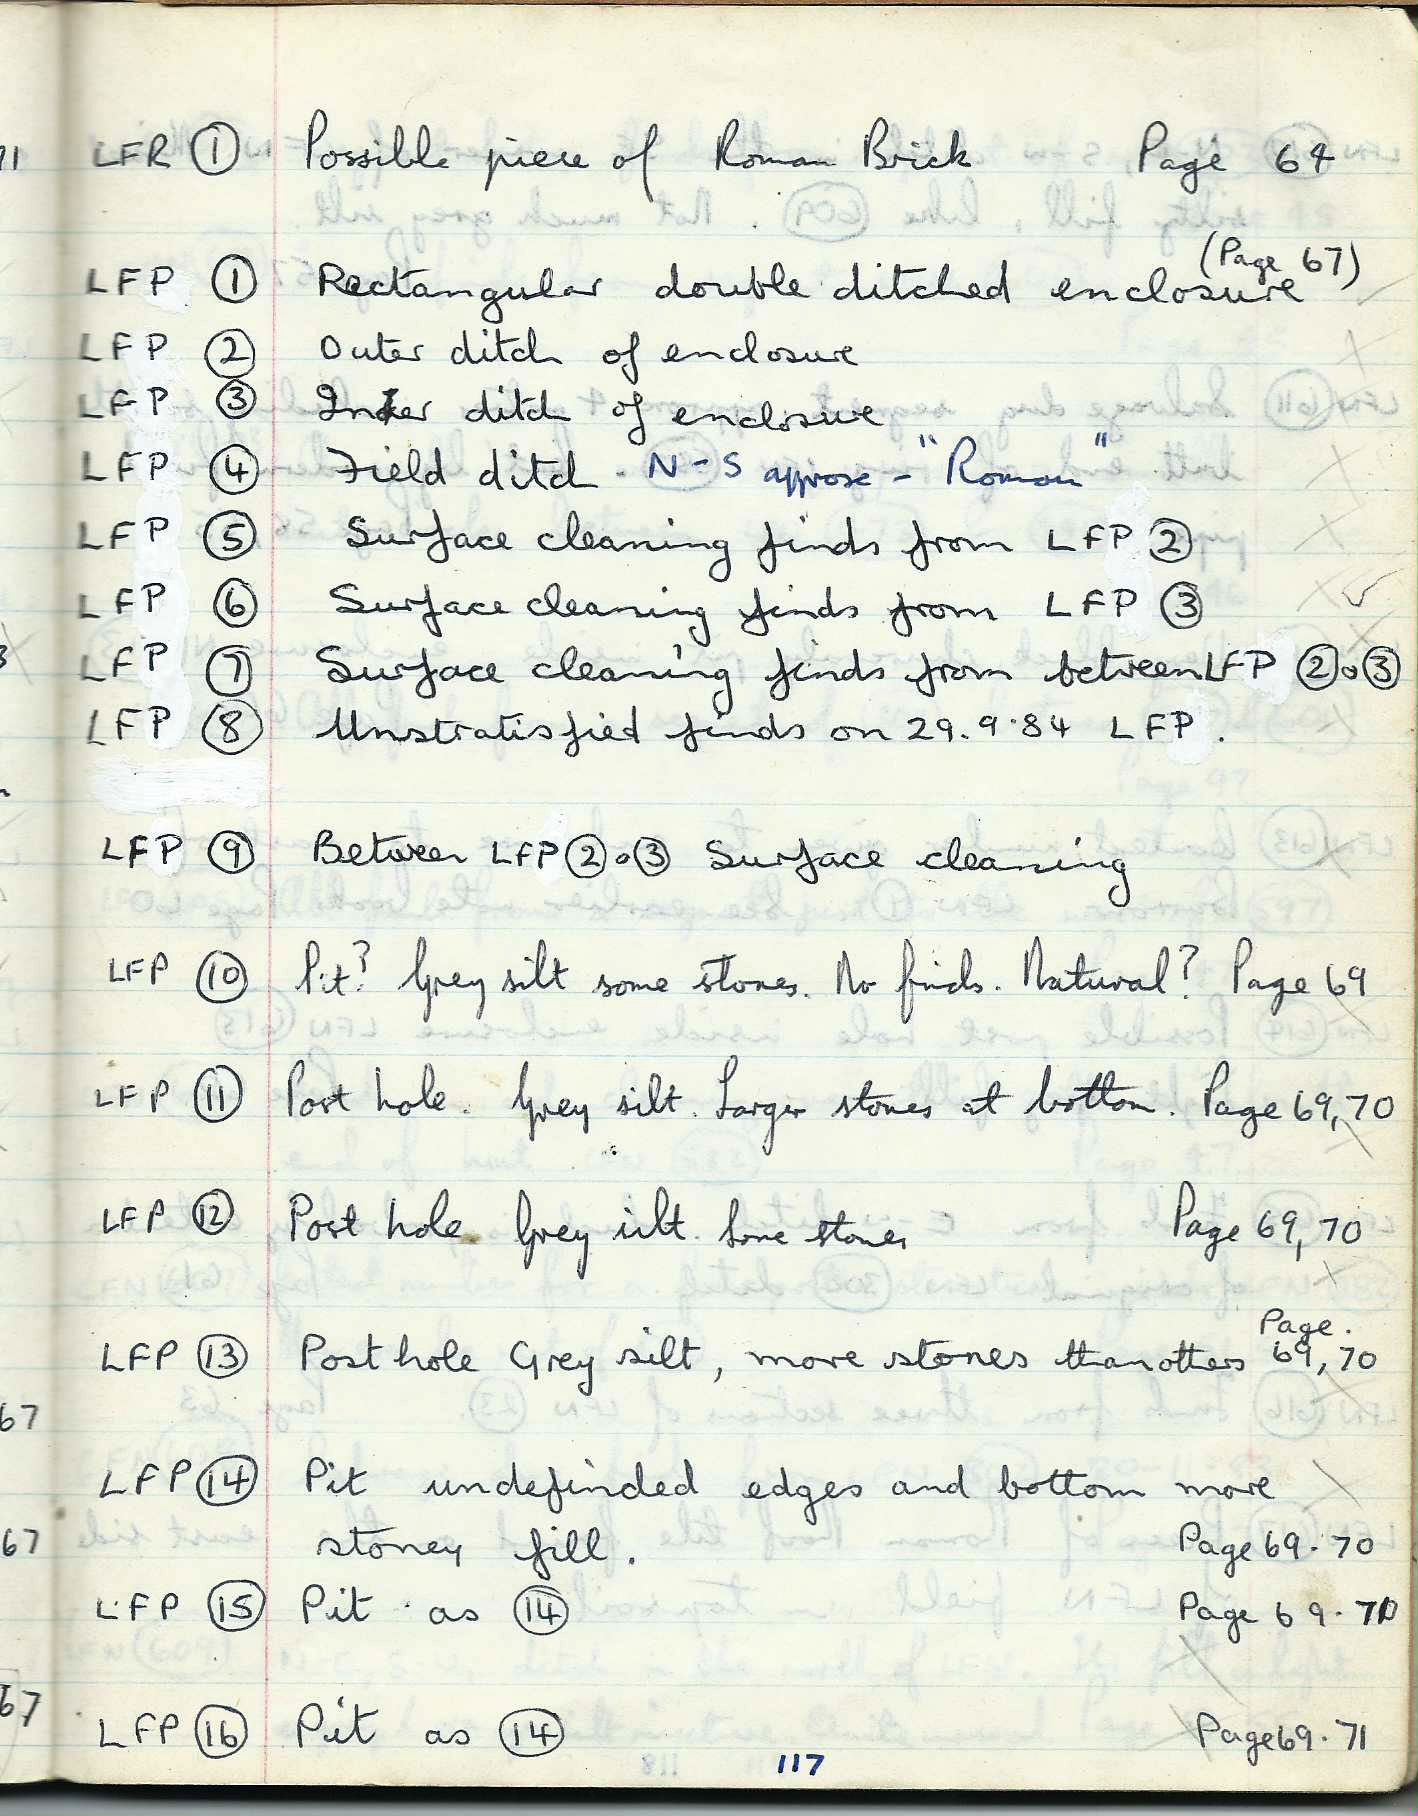 LFR ① Possible piece of Roman Brick Page 64
(Page 67)
LFP ① Rectangular double ditched enclosure
LFP ② Outer ditch of enclosure
LFP ③ Inner ditch of enclosure
LFP ④ Field ditch. N-S approx - "Roman"
LFP ⑤ Surface cleaning finds from LFP ②
LFP ⑥ Surface cleaning finds from LFP ③
LFP ⑦ Surface cleaning finds from between LFP ② o ③
LFP ⑧ Unstratisfied finds on 29.9.84 LFP.
LFP ⑨ Between LFP ② o ③ Surface cleaning
LFP ⑩ Pit? Grey silt some stones. No finds. Natural? Page 69
LFP ⑪ Post hole. Grey silt. Larger stones at bottom. Page 69, 70
LFP ⑫ Post hole Grey silt. Some stones Page 69, 70
Page.
LFP ⑬ Post hole Grey silt, more stones than others 69, 70
LFP ⑭ Pit undefinded edges and bottom more
stoney fill. Page 69.70
LFP ⑮ Pit as ⑭ Page 69.71
LFP ⑯ Pit as ⑭ Page 69.71
117